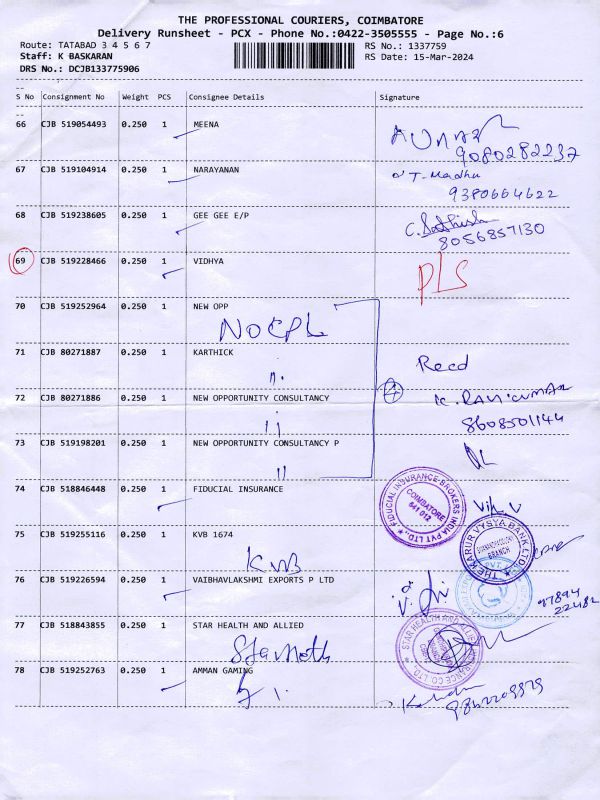 THE PROFESSIONAL COURIERS, COIMBATORE
Delivery Runsheet - PCX - Phone No.:0422-3505555 - Page No.:6
Route: TATABAD 3 4 5 6 7
RS No.: 1337759
Staff: K BASKARAN
RS Date: 15-Mar-2024
DRS No.: DCJB133775906
S No Consignment No Weight PCS Consignee Details Signature
66 CJB 519054493 0.250 1 MEENA
9080282237
67 CJB 519104914 0.250 1 NARAYANAN
T. Madhu
9380664622
68 CJB 519238605 0.250 1 GEE GEE E/P
C. Sathish
8056857130
69 CJB 519228466 0.250 1 VIDHYA
PLS
70 CJB 519252964 0.250 1 NEW OPP
NOCPL
71 CJB 80271887 0.250 1 KARTHICK
Recd
72 CJB 80271886 0.250 1 NEW OPPORTUNITY CONSULTANCY
4
K. RAVIKUMAR
8608501144
73 CJB 519198201 0.250 1 NEW OPPORTUNITY CONSULTANCY P
74 CJB 518846448 0.250 1 FIDUCIAL INSURANCE
FIDUCIAL INSURANCE BROKERS INDIA PVT LTD.,
COIMBATORE
641 012
75 CJB 519255116 0.250 1 KVB 1674
KVB
THE KARUR VYSYA BANK LTD.
BRANCH
76 CJB 519226594 0.250 1 VAIBHAVLAKSHMI EXPORTS P LTD
97894
22482
77 CJB 518843855 0.250 1 STAR HEALTH AND ALLIED
STAR HEALTH AND ALLIED INSURANCE CO. LTD.
78 CJB 519252763 0.250 1 AMMAN GAMING